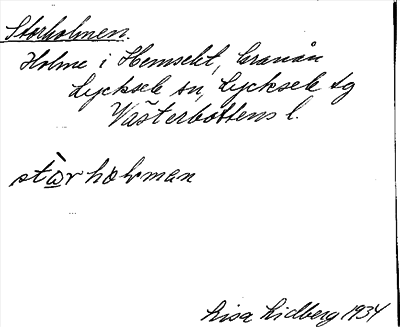 Storholmen.
Holme i Hemselet, Granån
Lycksele sn, Lycksele tg
Västerbottens l.
stà̲r hɷlman
Lisa Lidberg 1934